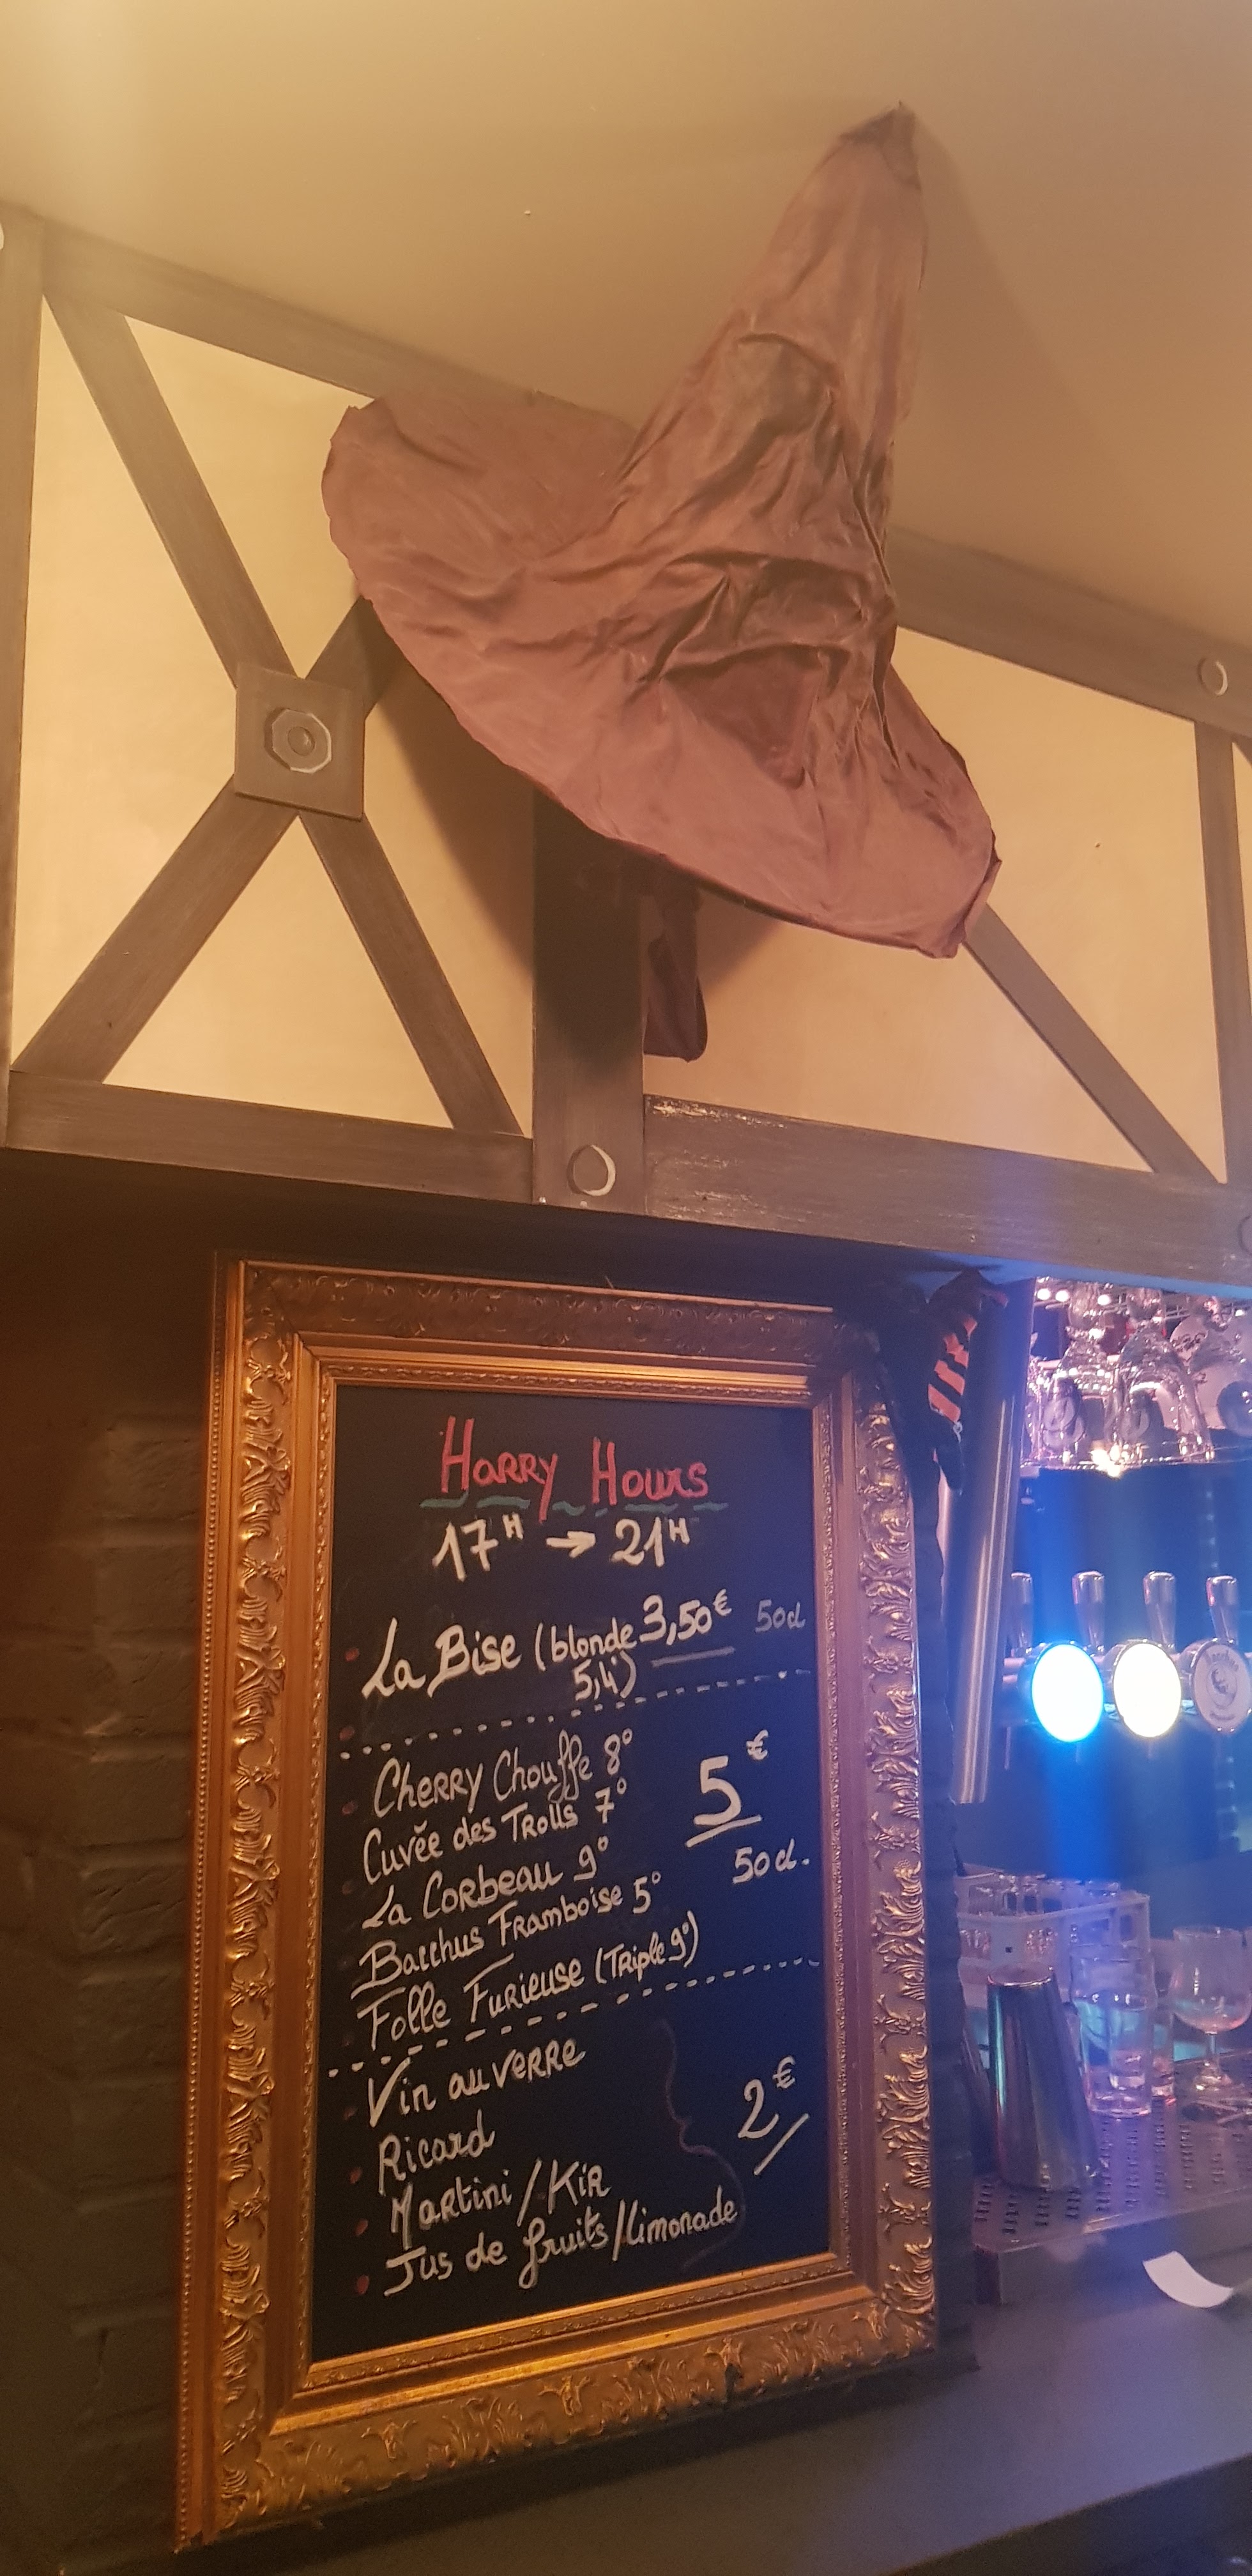 Harry Hours
17H → 21H
La Bise (blonde 3,50€ 50cl
5,4°)
Cherry Chouffe 8°
Cuvée des Trolls 7°
5€
La Corbeau 9°
50cl.
Bacchus Framboise 5°
Folle Furieuse (Triple 9°)
Vin au verre
Ricard
2€
Martini / Kir
Jus de fruits / limonade